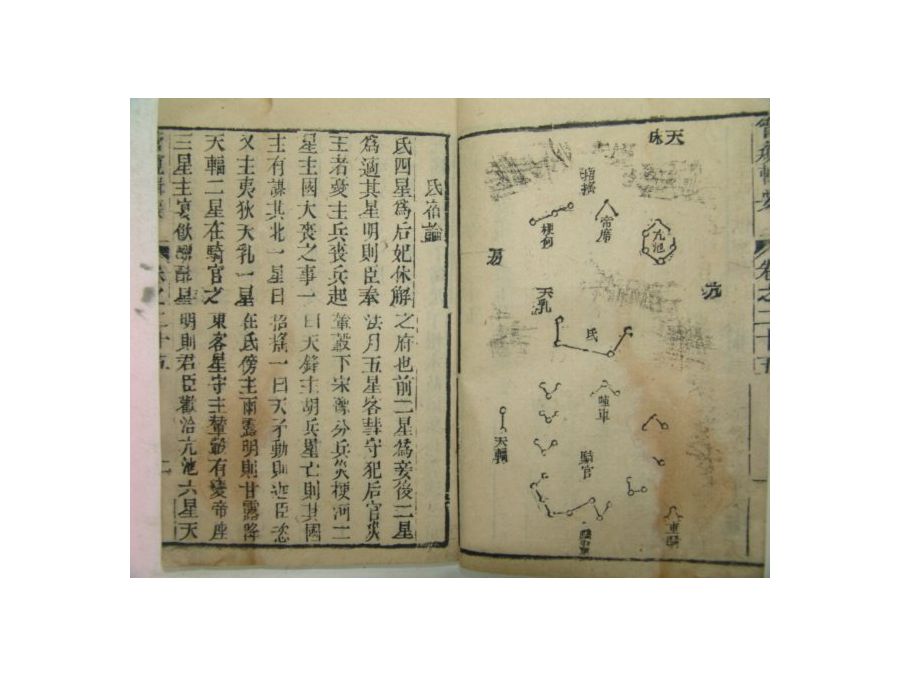 管窺輯要
卷之二十五
天
招搖
帝席
梗河
亢池
亢
房
天乳
氐
陣車
天輻
騎官
車騎
氐宿論
氐四星爲后妃休解之府也前二星爲妾後二星
爲適其星明則臣奉法月五星客彗守犯后宮災
王者憂主兵喪兵起輦轂下宋豫分兵災梗河三
星主國大喪之事一曰天鋒主胡兵星亡則其國
主有謀其北一星曰招搖一曰天矛動則邇臣恣
又主夷狄天乳一星在氐傍主雨露明則甘露降
天輻二星在騎官之東客星守主輦轂有變帝座
三星主宴飲酬酢星明則君臣歡洽亢池六星天
管窺輯要
卷之二十五
二